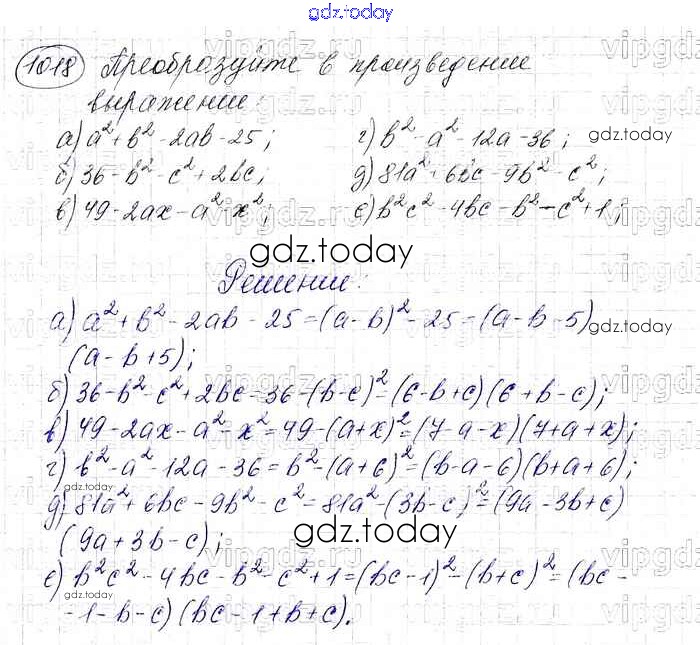 gdz.today
1018 Преобразуйте в произведение
выражение:
а) a² + b² - 2ab - 25; г) b² - a² - 12a - 36;
б) 36 - b² - c² + 2bc; д) 81a² + 6bc - 9b² - c²;
в) 49 - 2ax - a² - x²; е) b²c² - 4bc - b² - c² + 1;
gdz.today
gdz.today
Решение:
а) a² + b² - 2ab - 25 = (a - b)² - 25 = (a - b - 5)
gdz.today
(a - b + 5);
б) 36 - b² - c² + 2bc = 36 - (b - c)² = (6 - b + c)(6 + b - c);
в) 49 - 2ax - a² - x² = 49 - (a + x)² = (7 - a - x)(7 + a + x);
г) b² - a² - 12a - 36 = b² - (a + 6)² = (b - a - 6)(b + a + 6);
gdz.today
д) 81a² + 6bc - 9b² - c² = 81a² - (3b - c)² = (9a - 3b + c)
(9a + 3b - c);
gdz.today
е) b²c² - 4bc - b² - c² + 1 = (bc - 1)² - (b + c)² = (bc -
- 1 - b - c)(bc - 1 + b + c).